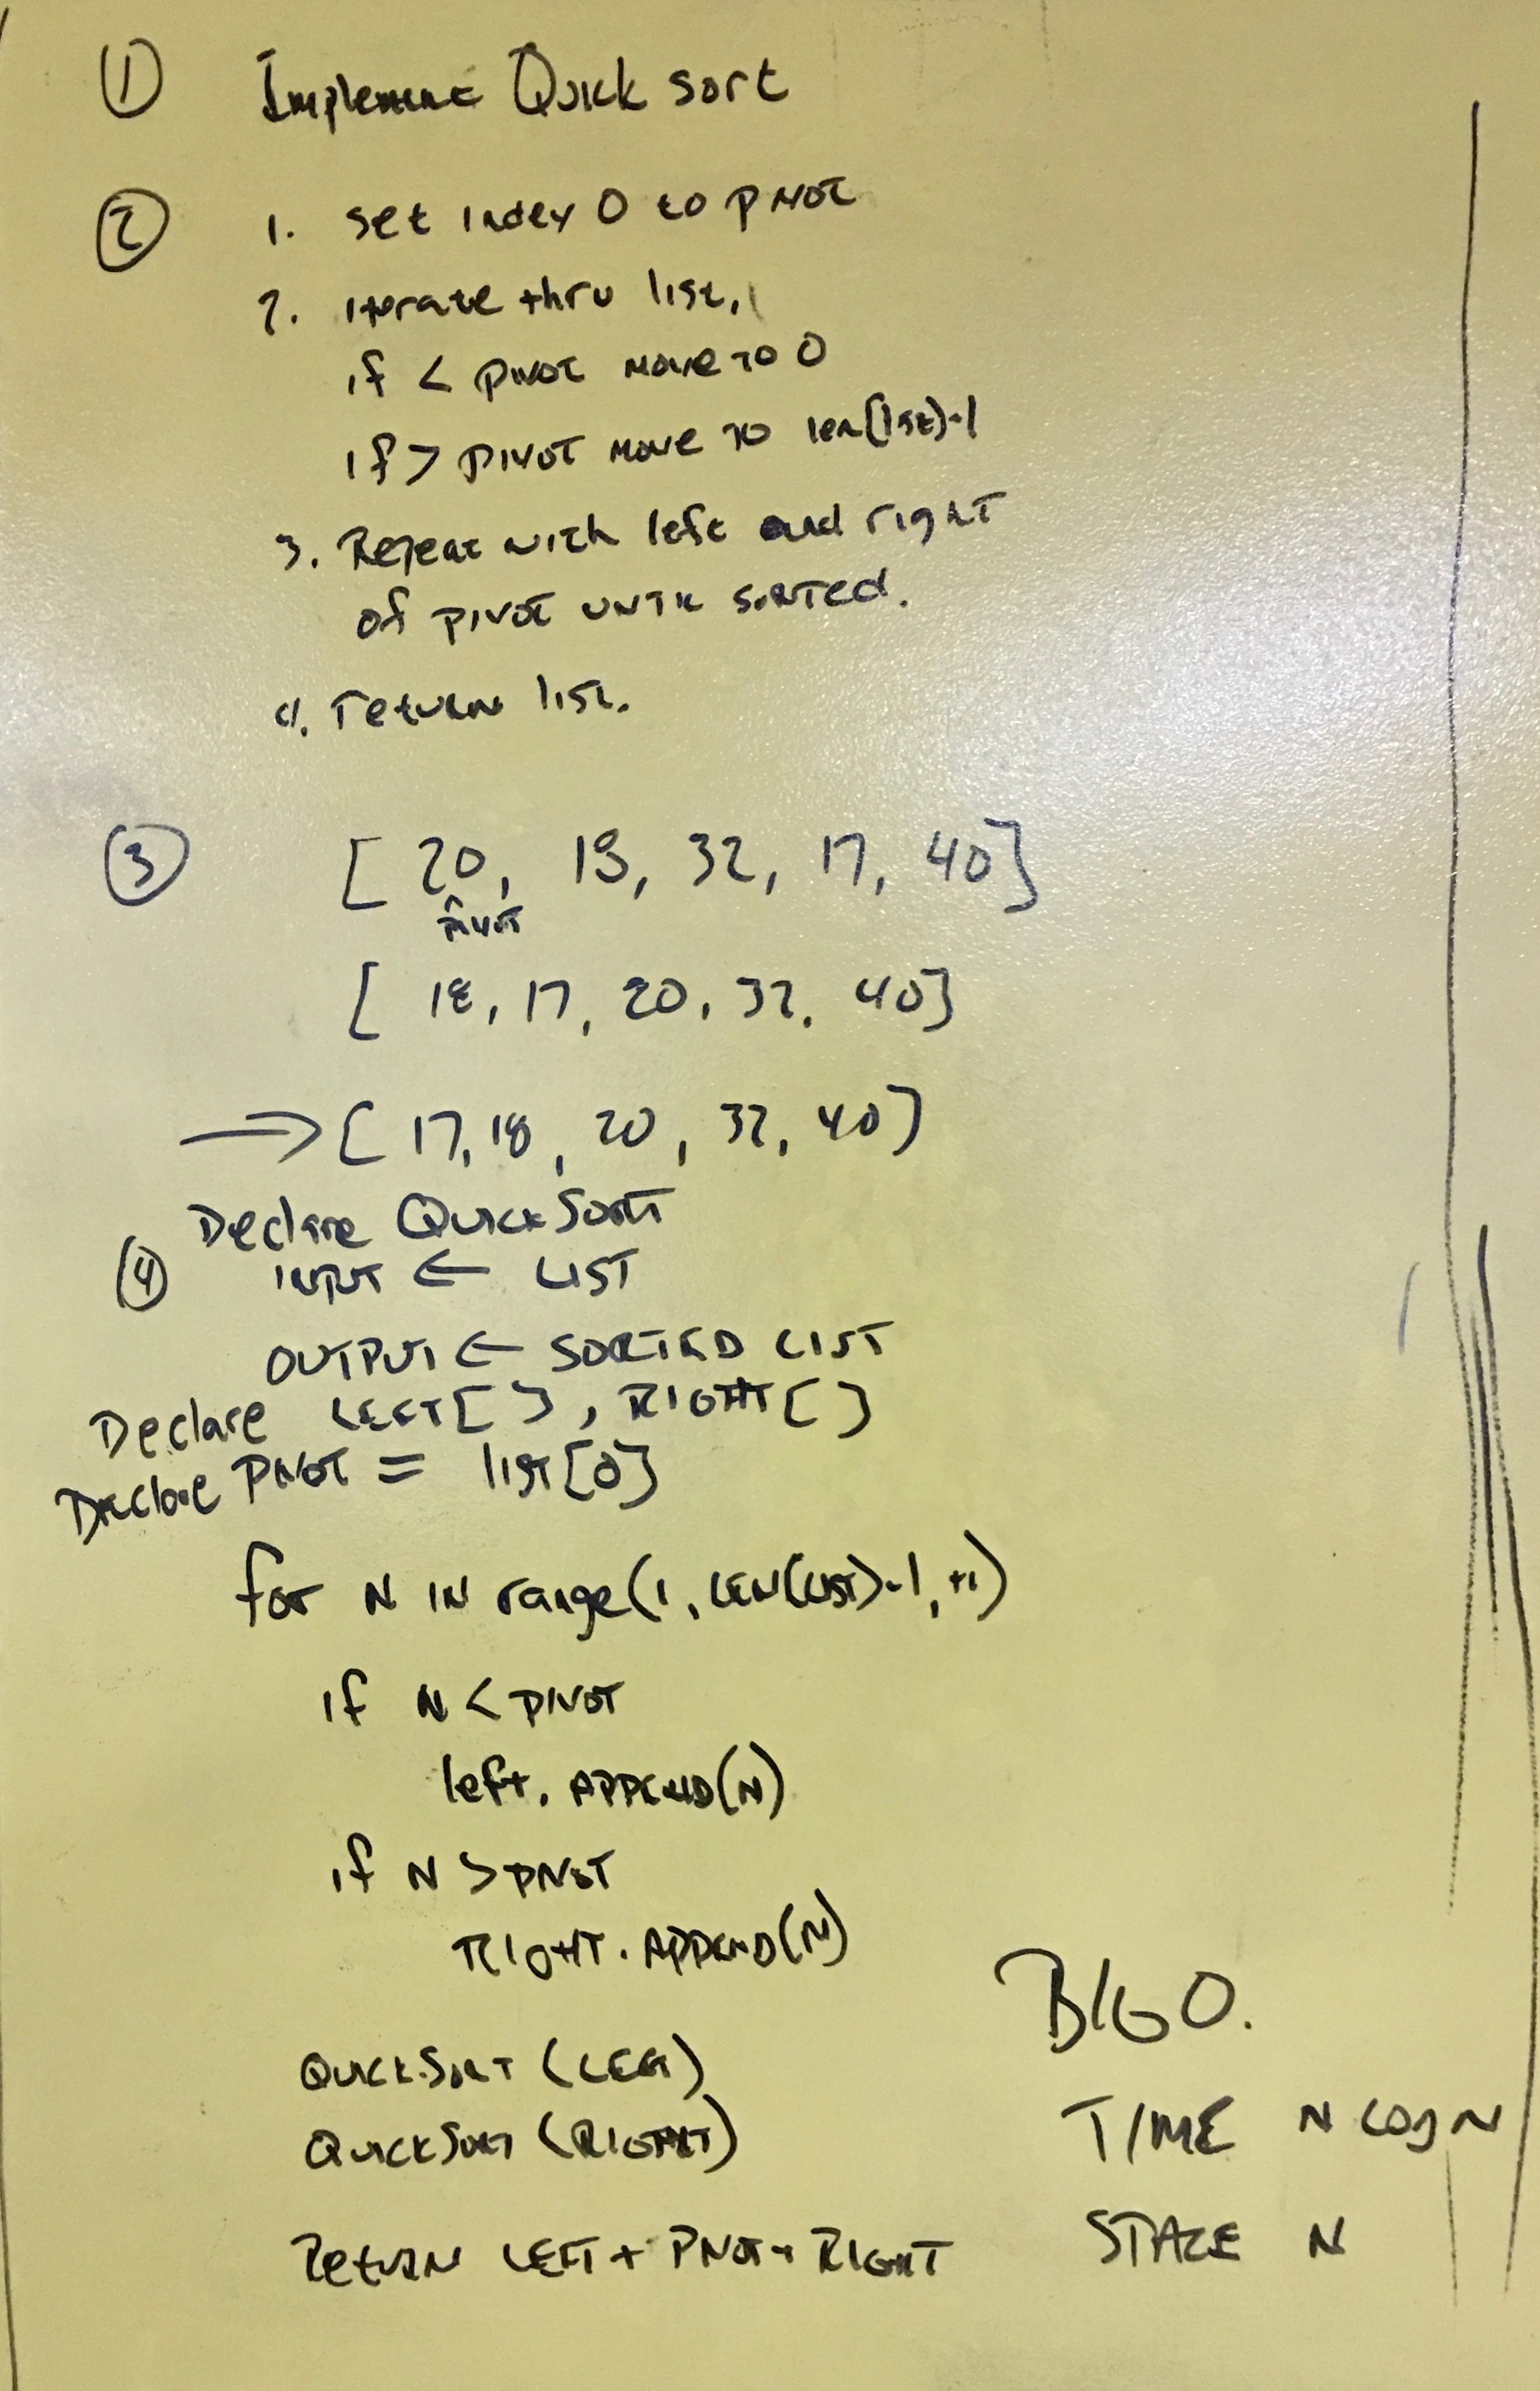 ① Implement Quick sort
② 1. set index 0 to pivot
2. iterate thru list,
if < pivot move to 0
if > pivot move to len(list)-1
3. Repeat with left and right
of pivot until sorted.
4. return list.
③ [ 20, 18, 32, 17, 40]
pivot
[ 18, 17, 20, 32, 40]
⇒ [ 17, 18, 20, 32, 40]
Declare QuickSort
④ INPUT ← LIST
OUTPUT ← SORTED LIST
Declare LEFT[ ], RIGHT[ ]
Declare PIVOT = list[0]
for N IN range(1, LEN(LIST)-1, +1)
if N < PIVOT
left.APPEND(N)
if N > PIVOT
RIGHT.APPEND(N)
QUICKSORT (LEFT)
QUICKSORT (RIGHT)
Return LEFT + PIVOT + RIGHT
BIG O.
TIME N LOG N
SPACE N